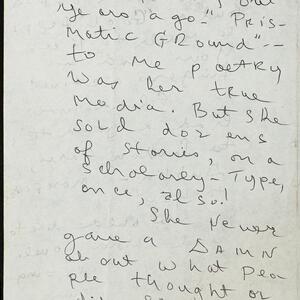 years ago—" PRIS-
Matic GROUND"--
to me poetry
was her true
media. But she
sold dozens
of stories, on a
Scholarly-Type,
once, also!
She Never
gave a DAMN
about what peo-
ple thought or